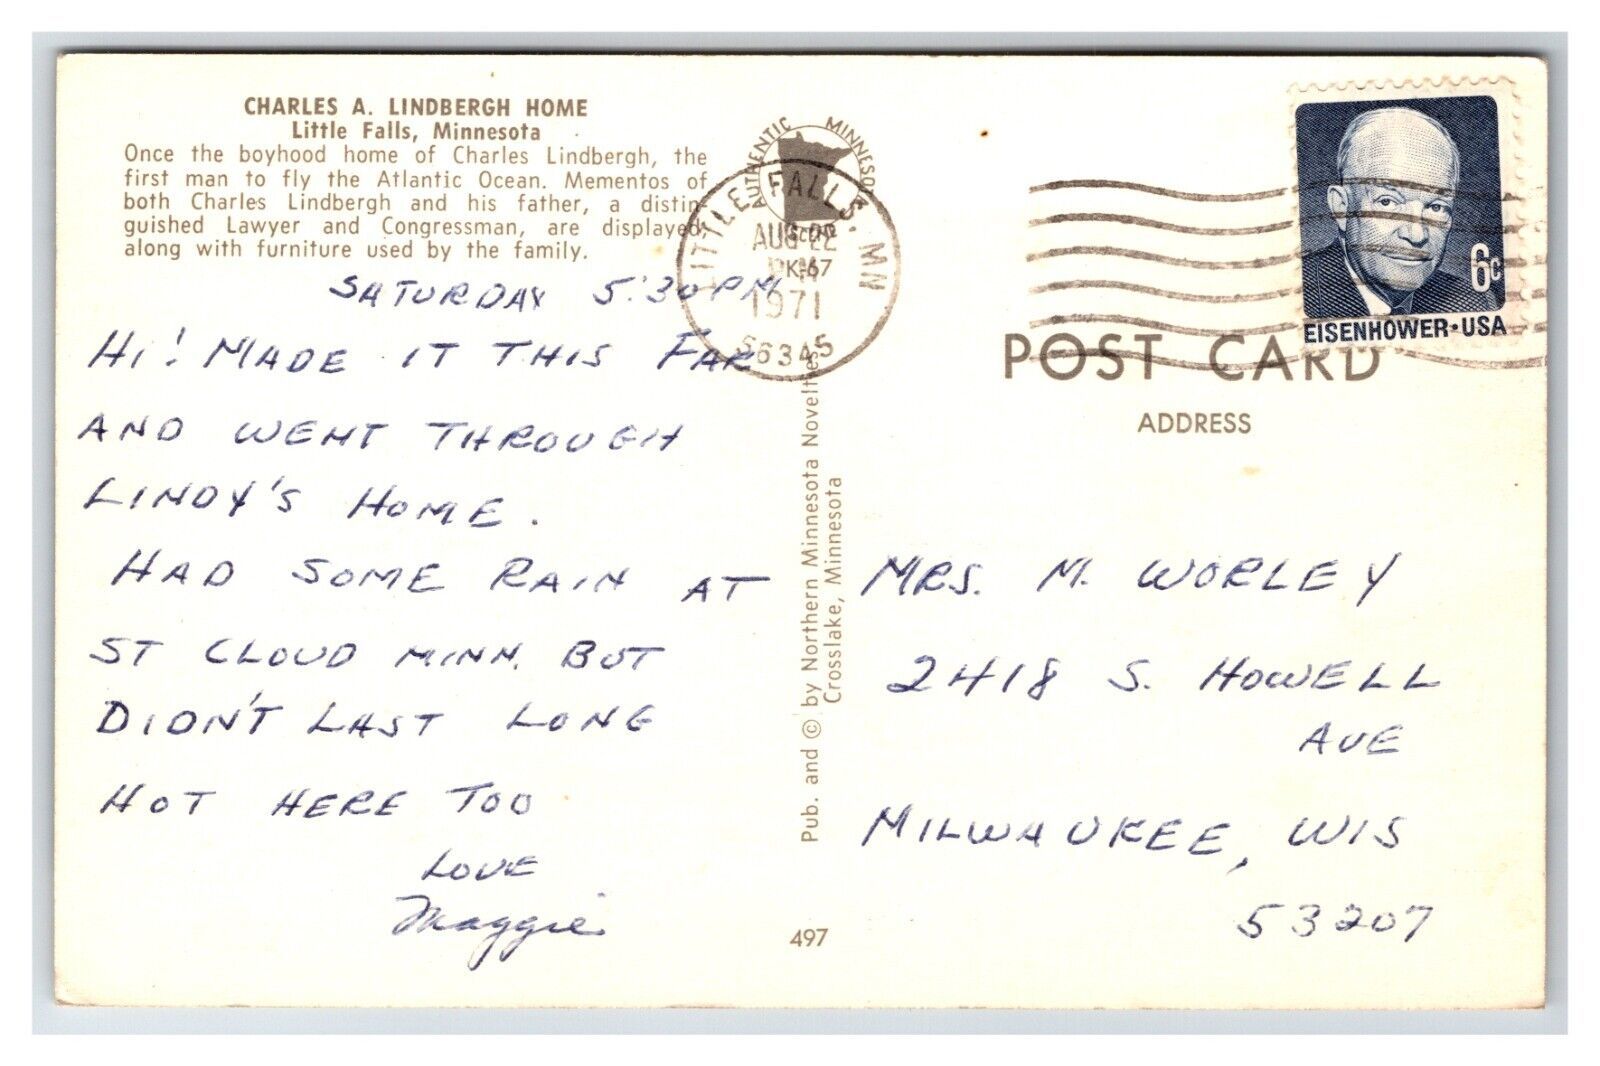 CHARLES A. LINDBERGH HOME
Little Falls, Minnesota
Once the boyhood home of Charles Lindbergh, the
first man to fly the Atlantic Ocean. Mementos of
both Charles Lindbergh and his father, a distin
guished Lawyer and Congressman, are displayed
along with furniture used by the family.
SATURDAY 5:30 PM
HI! MADE IT THIS FAR
AND WENT THROUGH
LINDY'S HOME.
HAD SOME RAIN AT
ST CLOUD MINN. BUT
DIDN'T LAST LONG
HOT HERE TOO
LOVE
Maggie
AUTHENTIC MINNESOTA
LITTLE FALLS, MN
AUG 22
PM
1971
56345
K-67
Pub. and © by Northern Minnesota Novelties
Crosslake, Minnesota
497
6c
EISENHOWER·USA
POST CARD
ADDRESS
MRS. M. WORLEY
2418 S. HOWELL
AVE
MILWAUKEE, WIS
53207